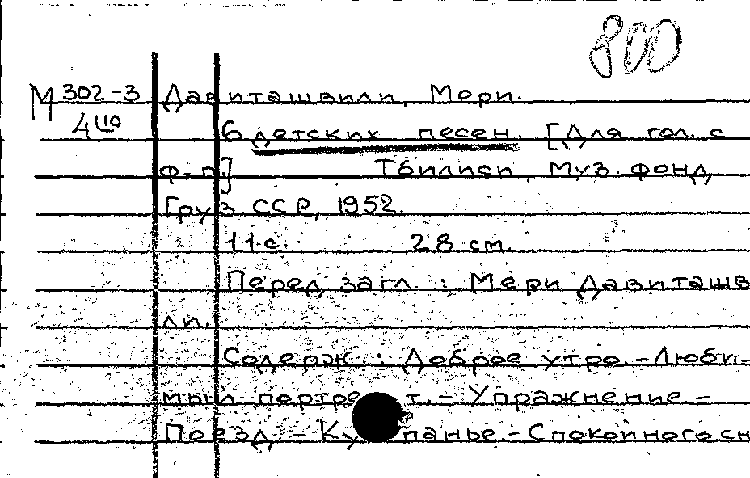 800
М 302-3 Давиташвили, Мери.
6 детских песен. [Для гол. с
ф.-п.] Тбилиси, Муз. фонд
Груз ССР, 1952.
11 с. 28 см.
Перед загл. : Мери Давиташв
ли.
Содерж. : Доброе утро. - Люби-
мый портрет. - Упражнение -
Поезд. - Купанье. - Спокойного сн